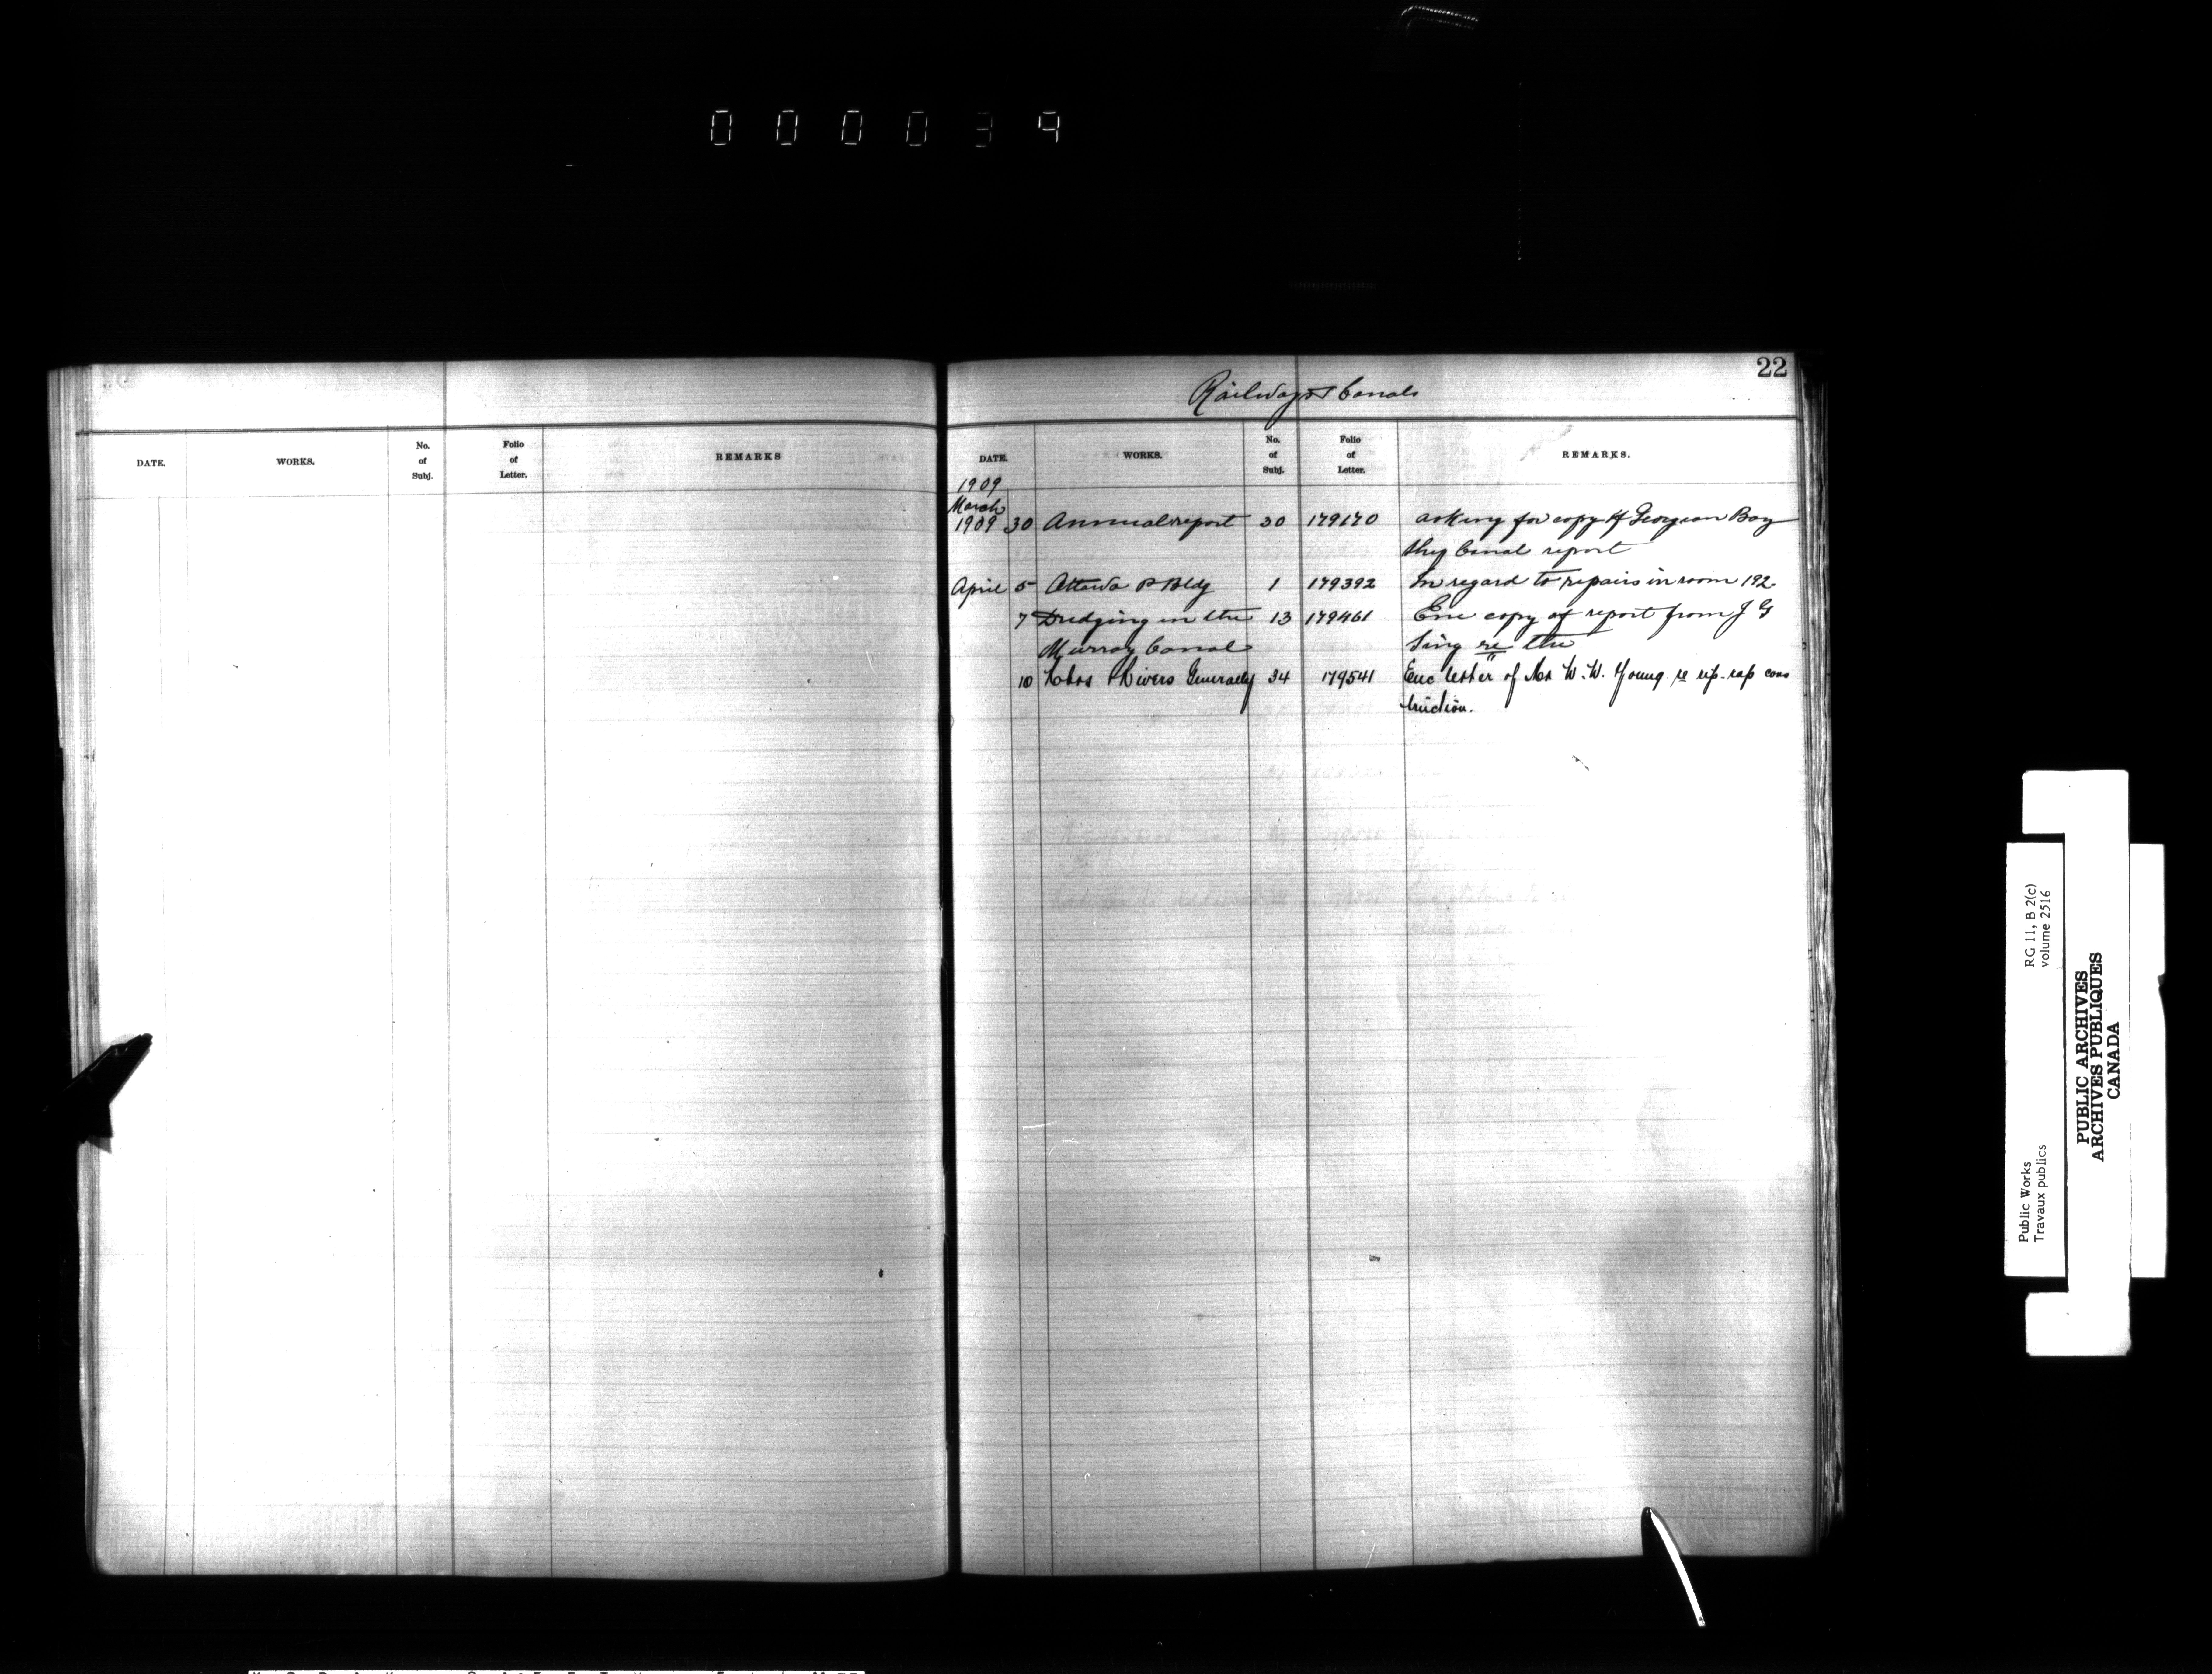 000039
22
Railways & Canals
DATE. WORKS. No. of Subj. Folio of Letter. REMARKS
DATE. WORKS. No. of Subj. Folio of Letter. REMARKS.
1909
March
1909 30 Annual report 30 179170 asking for copy of Georgian Bay
Ship Canal report
April 5 Ottawa P Bldg 1 179392 In regard to repairs in room 192.
7 Dredging in the 13 179461 Enc copy of report from J G
Murray Canal Sing re the
10 Hbrs & Rivers Generally 34 179541 Enc letter of Mr W. W. Young re rip-rap cons
truction.
Public Works
Travaux publics
RG 11, B 2(c)
volume 2516
PUBLIC ARCHIVES
ARCHIVES PUBLIQUES
CANADA